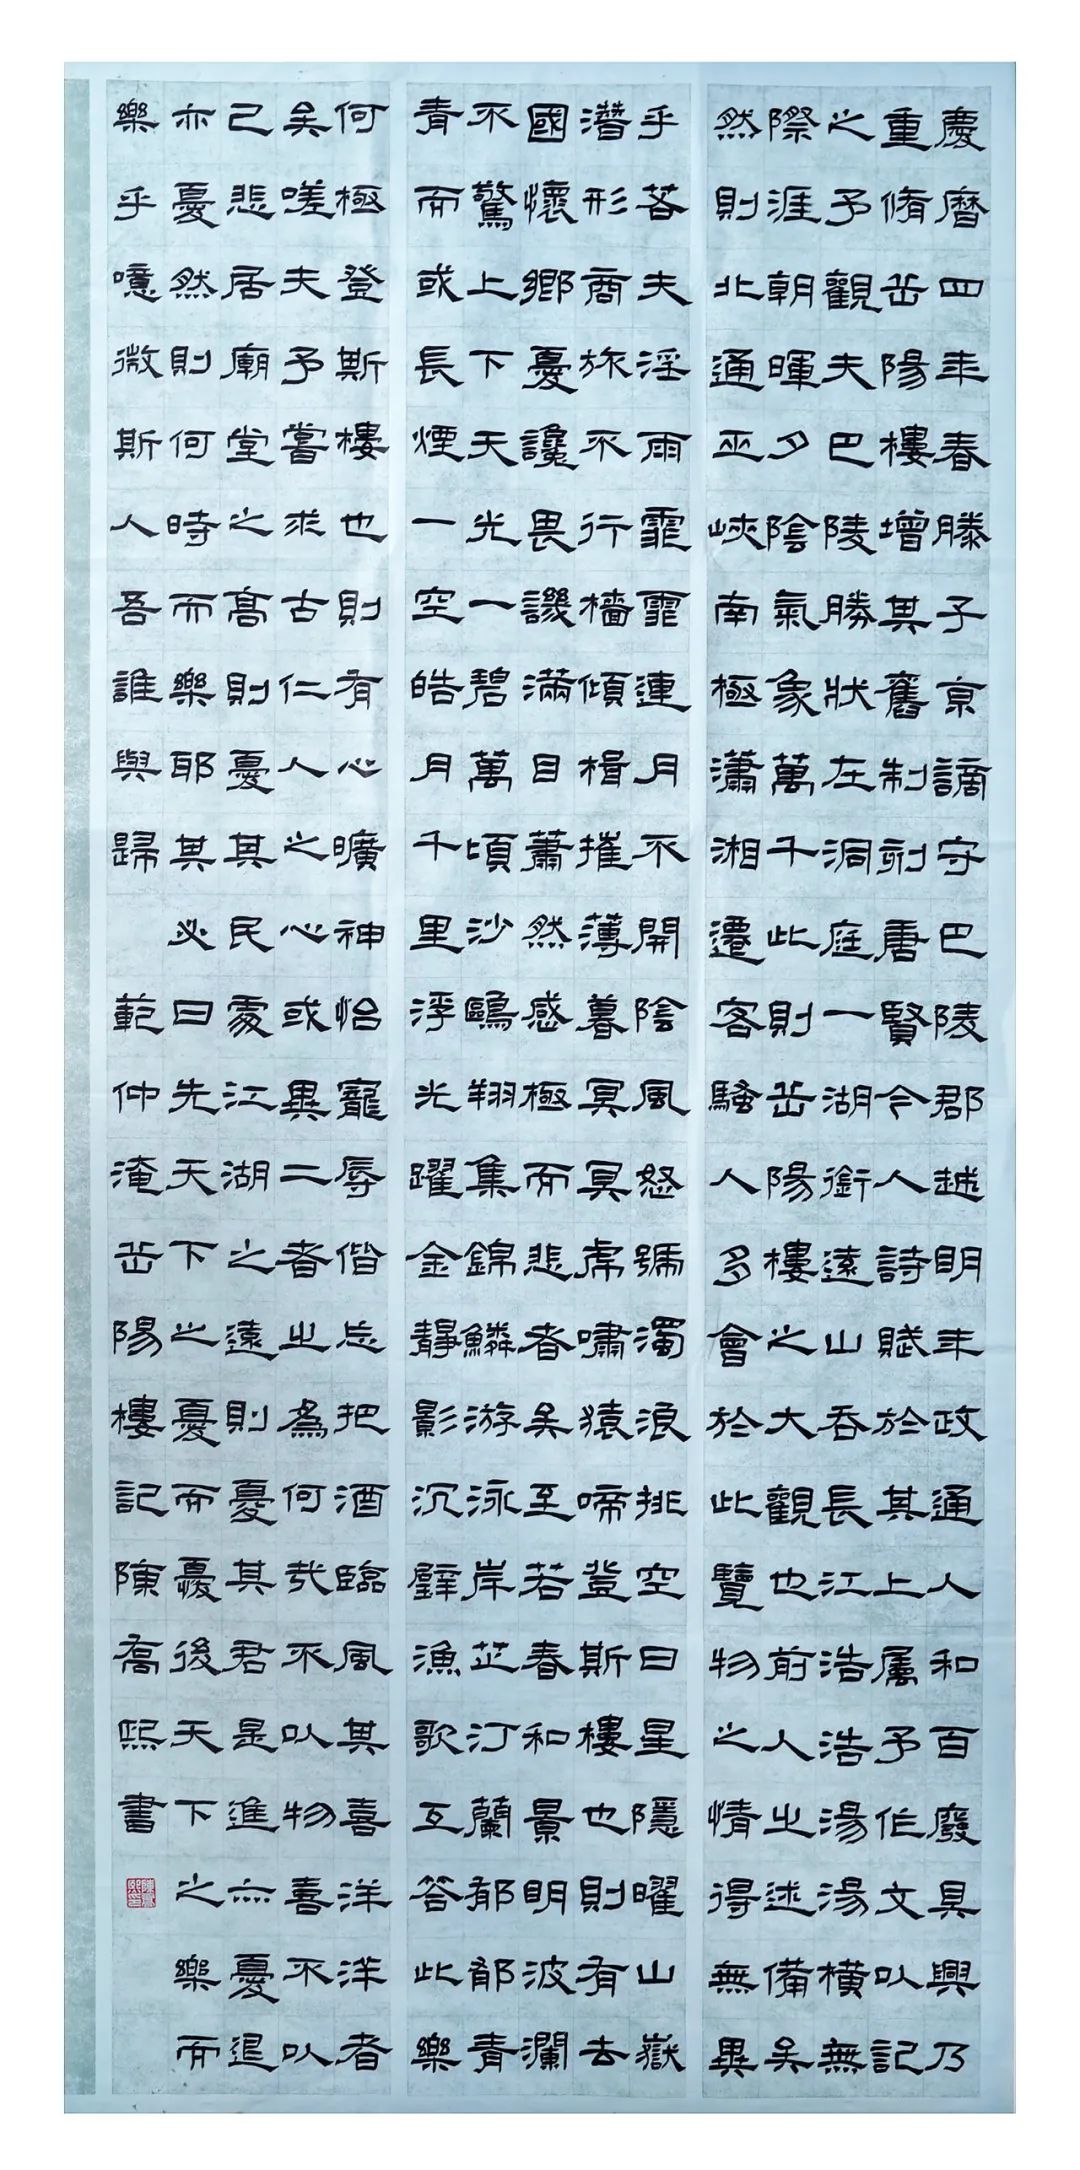 慶曆四年春滕子京謫守巴陵郡越明年政通人和百廢具興乃
重脩岳陽樓增其舊制刻唐賢今人詩賦於其上属予作文以記
之予觀夫巴陵勝狀在洞庭一湖銜遠山吞長江浩浩湯湯橫無
際涯朝暉夕陰氣象萬千此則岳陽樓之大觀也前人之述備矣
然則北通巫峽南極瀟湘遷客騷人多會於此覽物之情得無異
乎若夫淫雨霏霏連月不開陰風怒號濁浪排空日星隱曜山嶽
潛形商旅不行檣傾楫摧薄暮冥冥虎嘯猿啼登斯樓也則有去
國懷鄉憂讒畏譏滿目蕭然感極而悲者矣至若春和景明波瀾
不驚上下天光一碧萬頃沙鷗翔集錦鱗游泳岸芷汀蘭郁郁青
青而或長煙一空皓月千里浮光躍金靜影沉璧漁歌互答此樂
何極登斯樓也則有心曠神怡寵辱偕忘把酒臨風其喜洋洋者
矣嗟夫予嘗求古仁人之心或異二者之為何哉不以物喜不以
己悲居廟堂之高則憂其民處江湖之遠則憂其君是進亦憂退
亦憂然則何時而樂耶其必曰先天下之憂而憂後天下之樂而
樂乎噫微斯人吾誰與歸 範仲淹岳陽樓記陳喬熙書